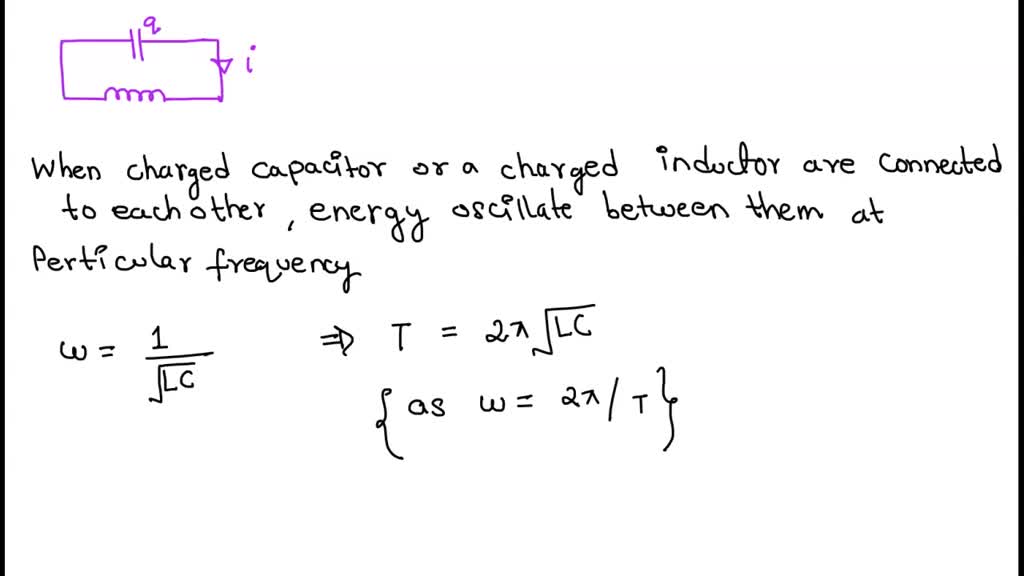 q
i
When charged capacitor or a charged inductor are connected
to each other, energy oscillate between them at
Perticular frequency
ω = 1/√LC ⇒ T = 2π√LC
{as ω = 2π/T}